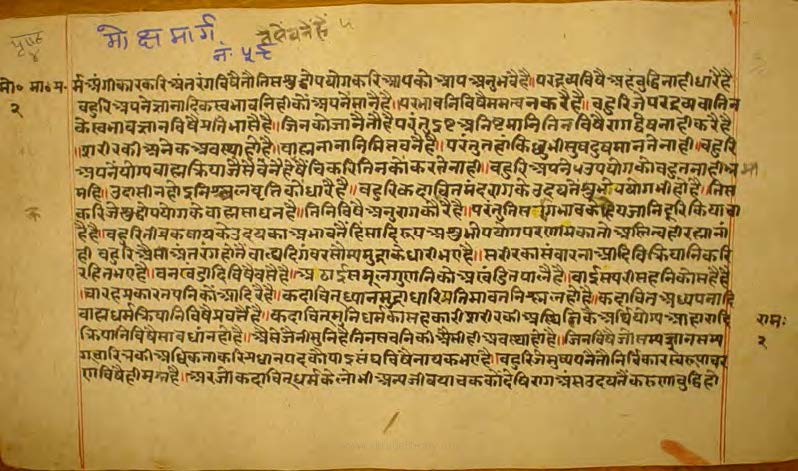 मोक्षमार्ग
नं. ५६
मो० मा० प्र० र्म अंगीकार करि अंतरंग विषै तौ तिस शुद्धोपयोग करि आपकौं आप अनुभवै है॥ परद्रव्य विषै अहंबुद्धि नाही धारै है
२ बहुरि अपने ज्ञानादिक स्वभावनि ही कौं अपने मानै है॥ परभावनि विषै ममत्व न करै है॥ बहुरि जे परद्रव्य वा तिन
के स्वभाव ज्ञान विषै प्रतिभासै है॥ तिनकौं जानै तौ है परंतु इष्ट अनिष्ट मानि तिन विषै राग द्वेष नाही करै है
॥ शरीर की अनेक अवस्था हो है॥ बाह्य नाना निमित्त बनै है॥ परंतु तहां किछु भी सुख दुख मानते नाही॥ बहुरि
अपने योग्य बाह्य क्रिया जैसै बनै है तैसै बनै है षैंचि करि तिनकौं करते नाही॥ बहुरि अपने उपयोग कौं बहुत नाही भ्र
महि॥ उदासीन हो निश्चल वृत्ति कौं धारै है॥ बहुरि कदाचित मंदराग के उदय तै शुभोपयोग भी हो है॥ तिस
करि जे शुद्धोपयोग के बाह्य साधन है॥ तिनि विषै अनुराग करै है॥ परंतु तिस रागभाव कौं हेय जानि दूरि किया चा
है है॥ बहुरि तीव्र कषाय के उदय का अभाव तै हिंसादि रूप अशुभोपयोग परणति का तौ अस्तित्व ही रह्या ना
ही बहुरि ऐसी अंतरंग होतै बाह्य दिगंबर सौम्य मुद्रा के धारी भए है॥ सरीर का संवारना आदि विक्रियानि करि
रहित भए है॥ वनखंडादि विषै वसै है॥ अठाईस मूलगुणनि कौं अखंडित पालै है॥ बाईस परीसहनि कौं सहै है
॥ बारह प्रकार तपनि कौं आदरै है॥ कदाचित ध्यान मुद्रा धारि प्रतिमावत निश्चल हो है॥ कदाचित अध्ययनादि
बाह्य धर्म क्रियानि विषै प्रवर्तै है॥ कदाचित मुनिधर्म का सहकारी शरीर की स्थिति के अर्थि योग्य आहारादि
क्रियानि विषै सावधान हो है॥ ऐसे जैनी मुनि है तिन सबनि की ऐसी ही अवस्था हो है॥ तिनि विषै जो सम्यग्ज्ञान सम्य
ग्चारित्र की अधिकता करि प्रधान पद कौं पाइ संघ विषै नायक भए है॥ बहुरि जे मुख्यपनै तौ निर्विकल्प स्वरूपाचर
ण विषै ही मग्न है॥ अर जो कदाचित धर्म के लोभी अन्य जीव याचक कौं देषि राग अंस उदय तै करुणा बुद्धि हो
रामः
२